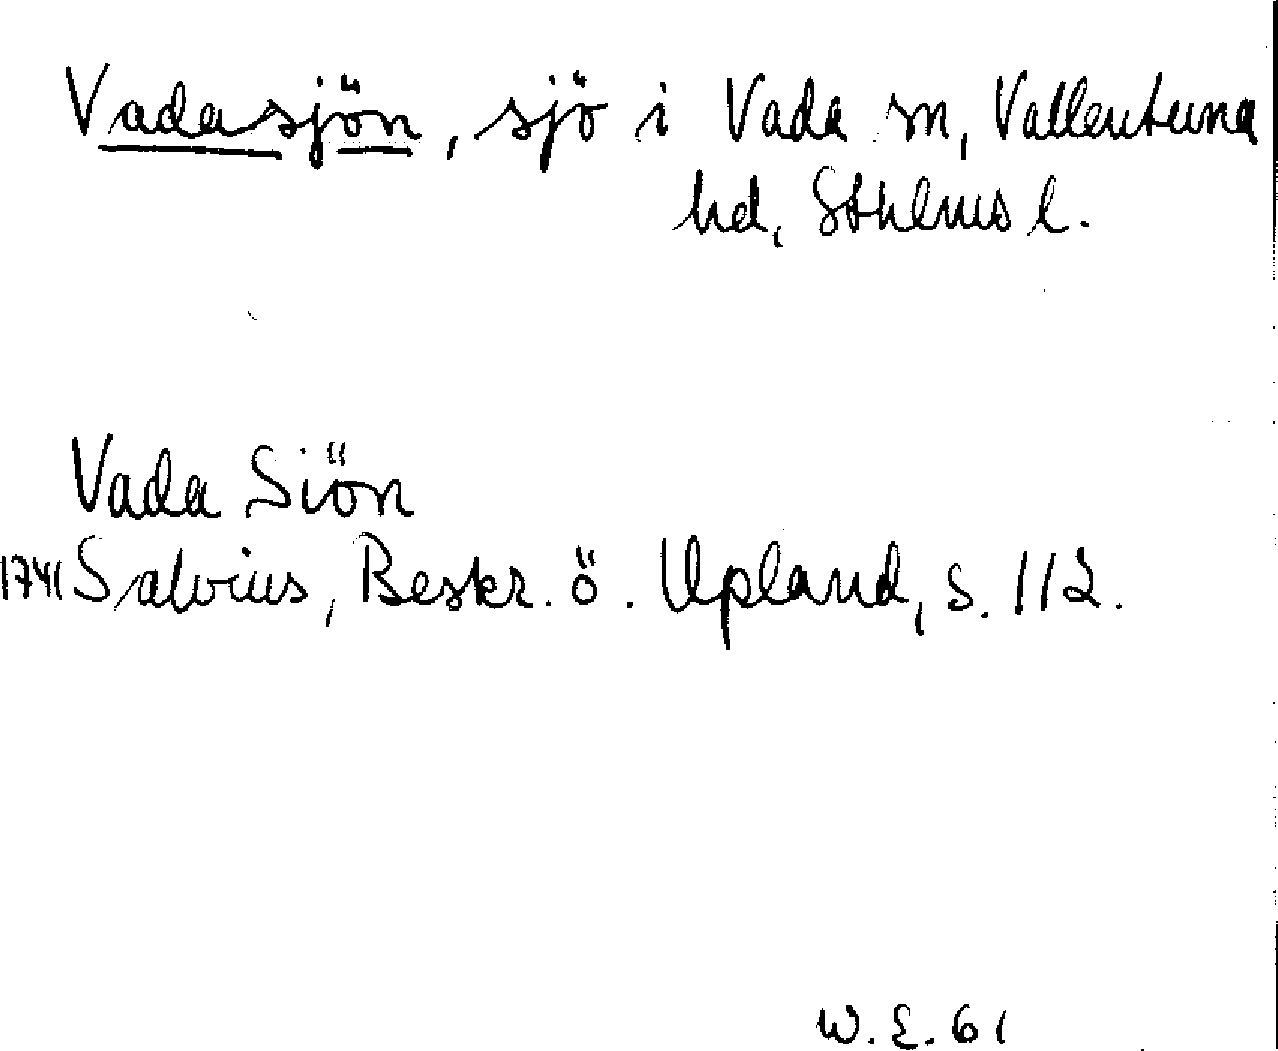 Vadasjön, sjö i Vada sn, Vallentuna
hd, Sthlms l.
Vada Siön
1741 Salvius, Beskr. ö. Upland, s. 112.
W. E. 61